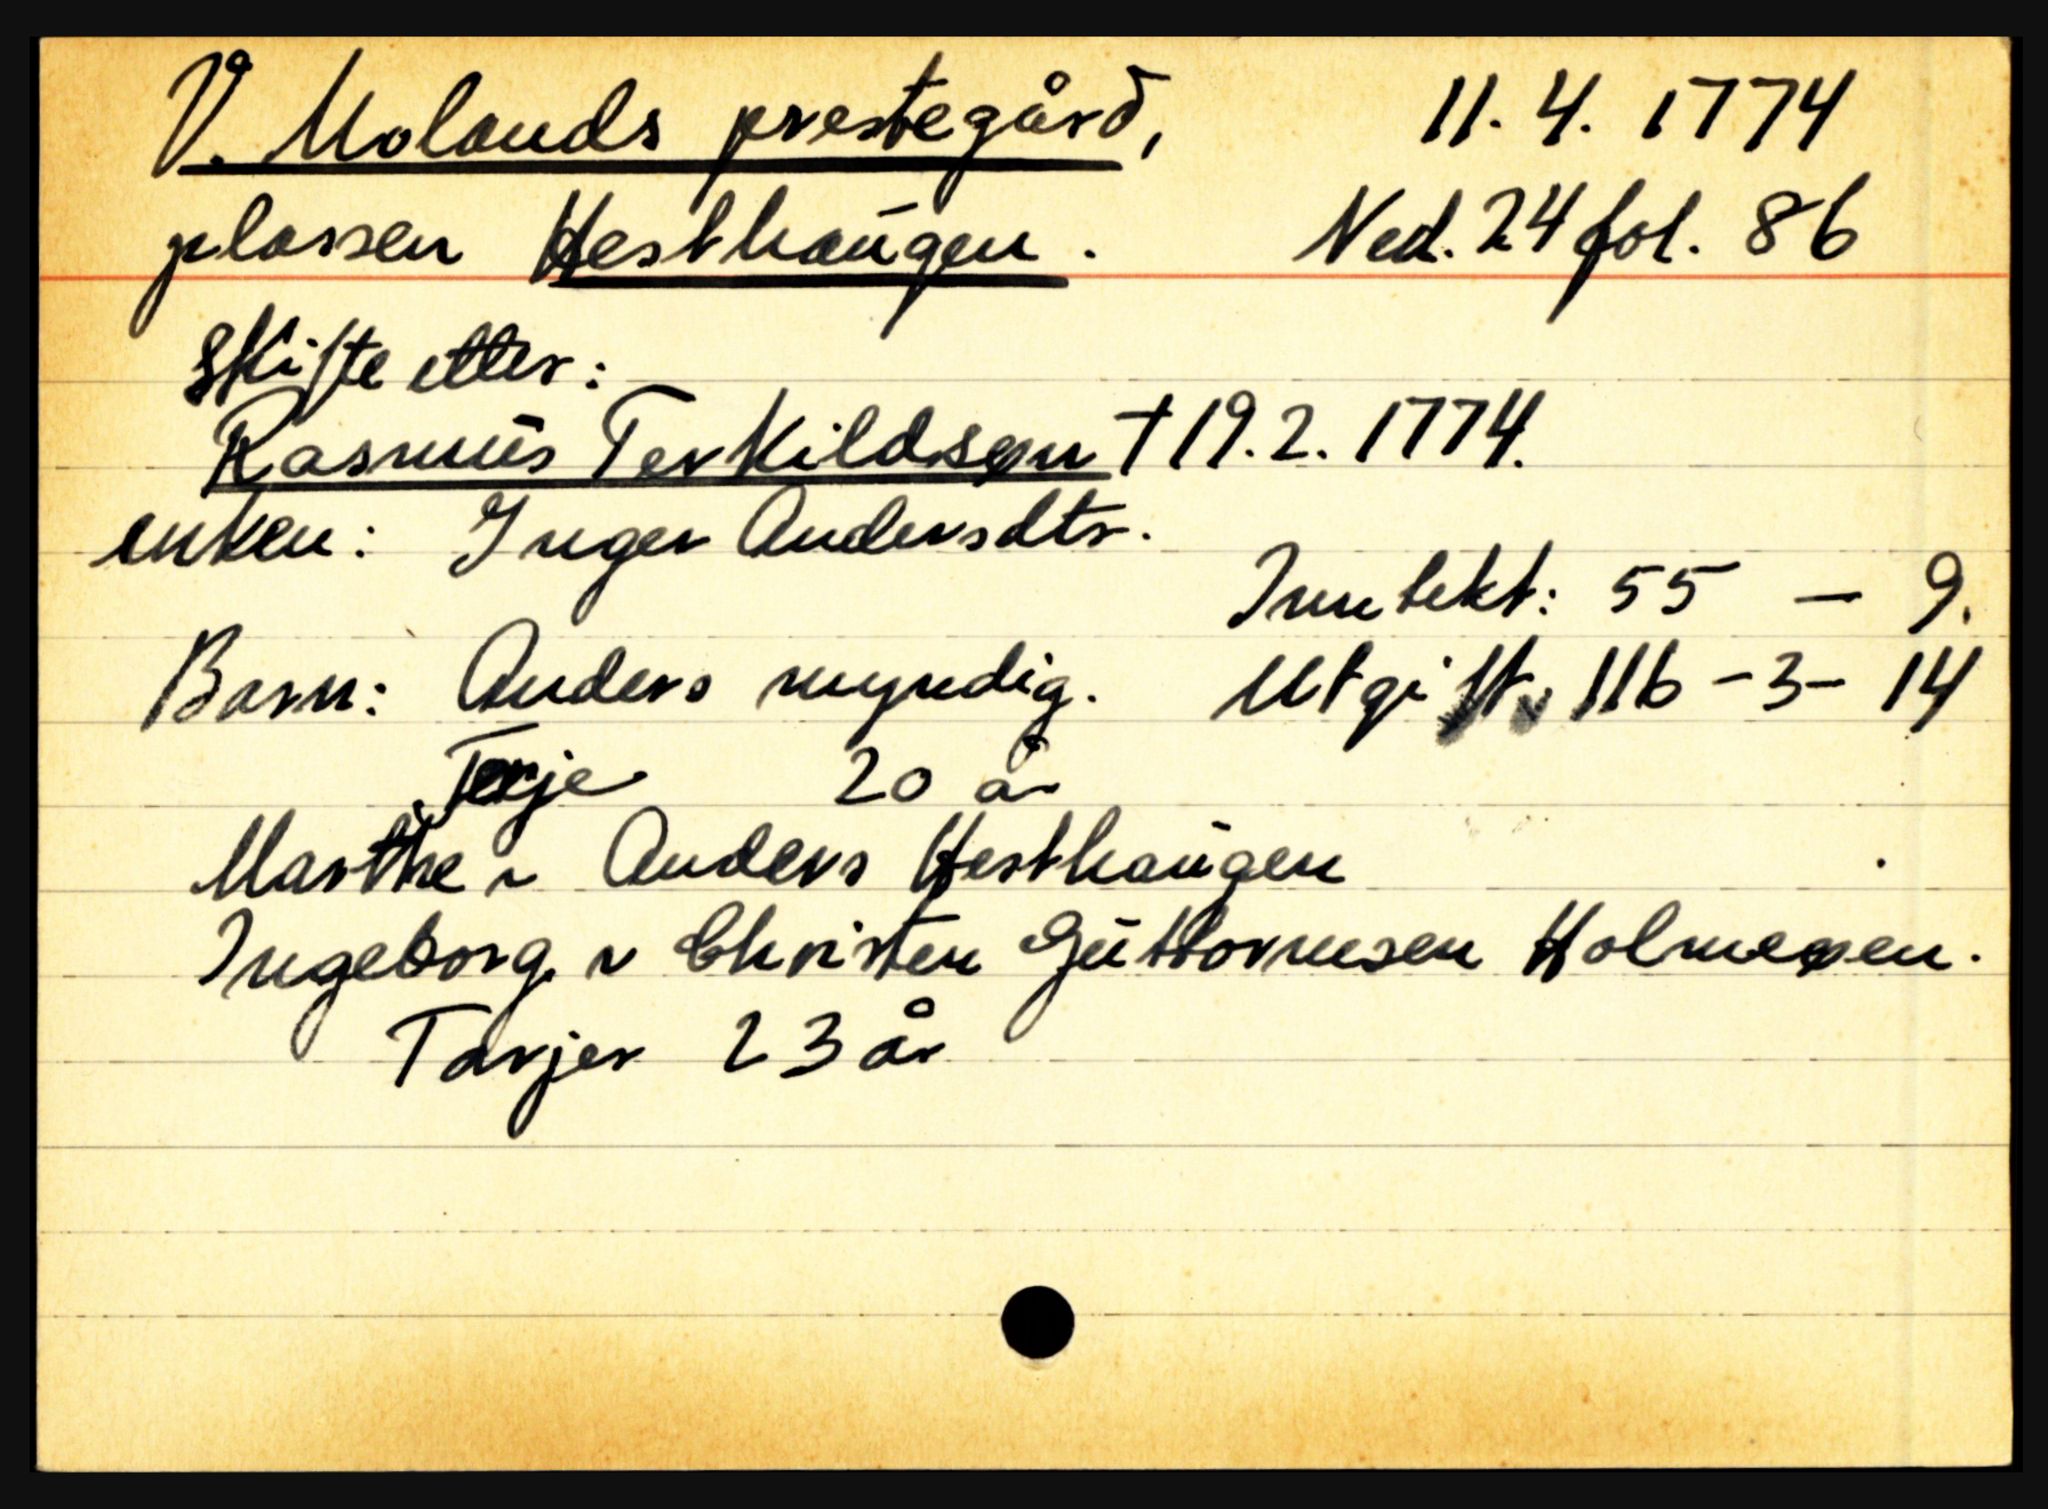 V. Molands prestegård, 11. 4. 1774
plassen Hesthaugen. Ned. 24 fol. 86
Skifte etter:
Rasmus Terkildsen † 19. 2. 1774.
enken: Inger Andersdtr.
Inntekt: 55 — 9.
Barn: Anders myndig. Utgift. 116 - 3 - 14
Terje 20 år
Marthe v Anders Hesthaugen
Ingeborg v Christen Guttormsen
Tarjer 23 år